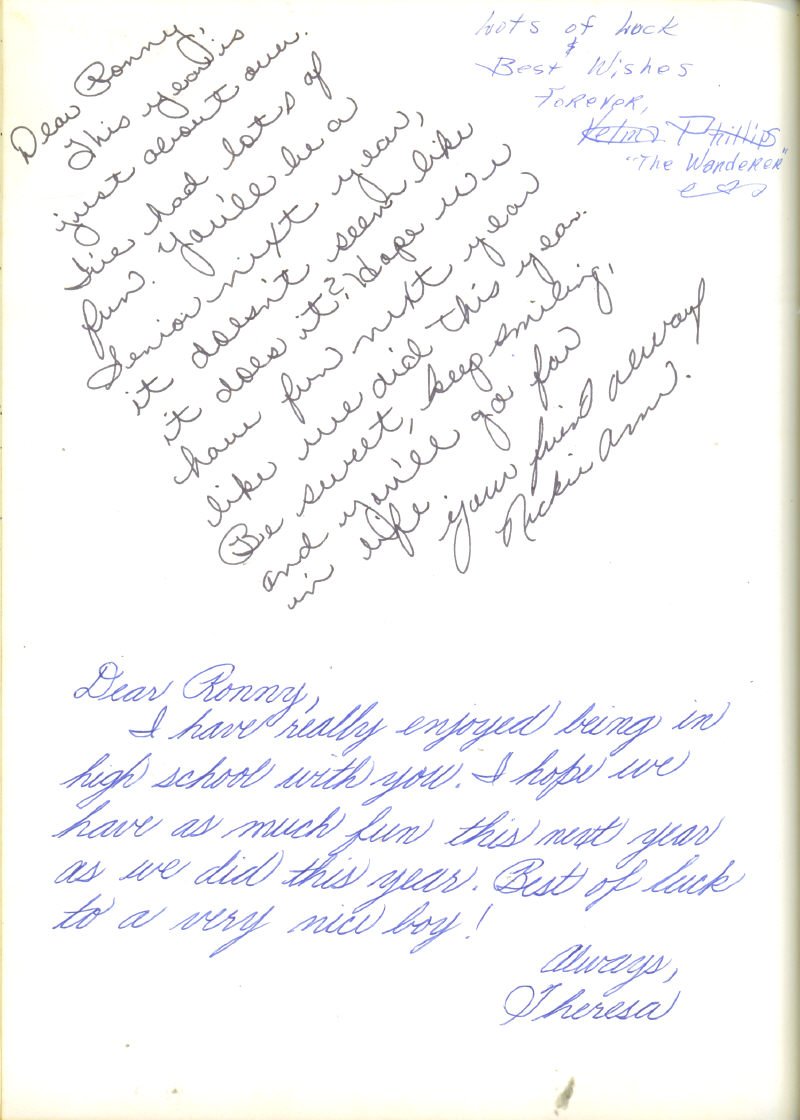 Dear Ronny,
This year is
just about over.
I've had lots of
fun. You'll be a
Senior next year,
it doesn't seem like
it does it? Hope we
have fun next year
like we did this year.
Be sweet, keep smiling,
and you'll go far
in life.
your friend always
Rickie Ann.
Lots of Luck
&
Best Wishes
Forever,
Velma Phillips
"The Wanderer"
Dear Ronny,
I have really enjoyed being in
high school with you. I hope we
have as much fun this next year
as we did this year. Best of luck
to a very nice boy!
Always,
Theresa